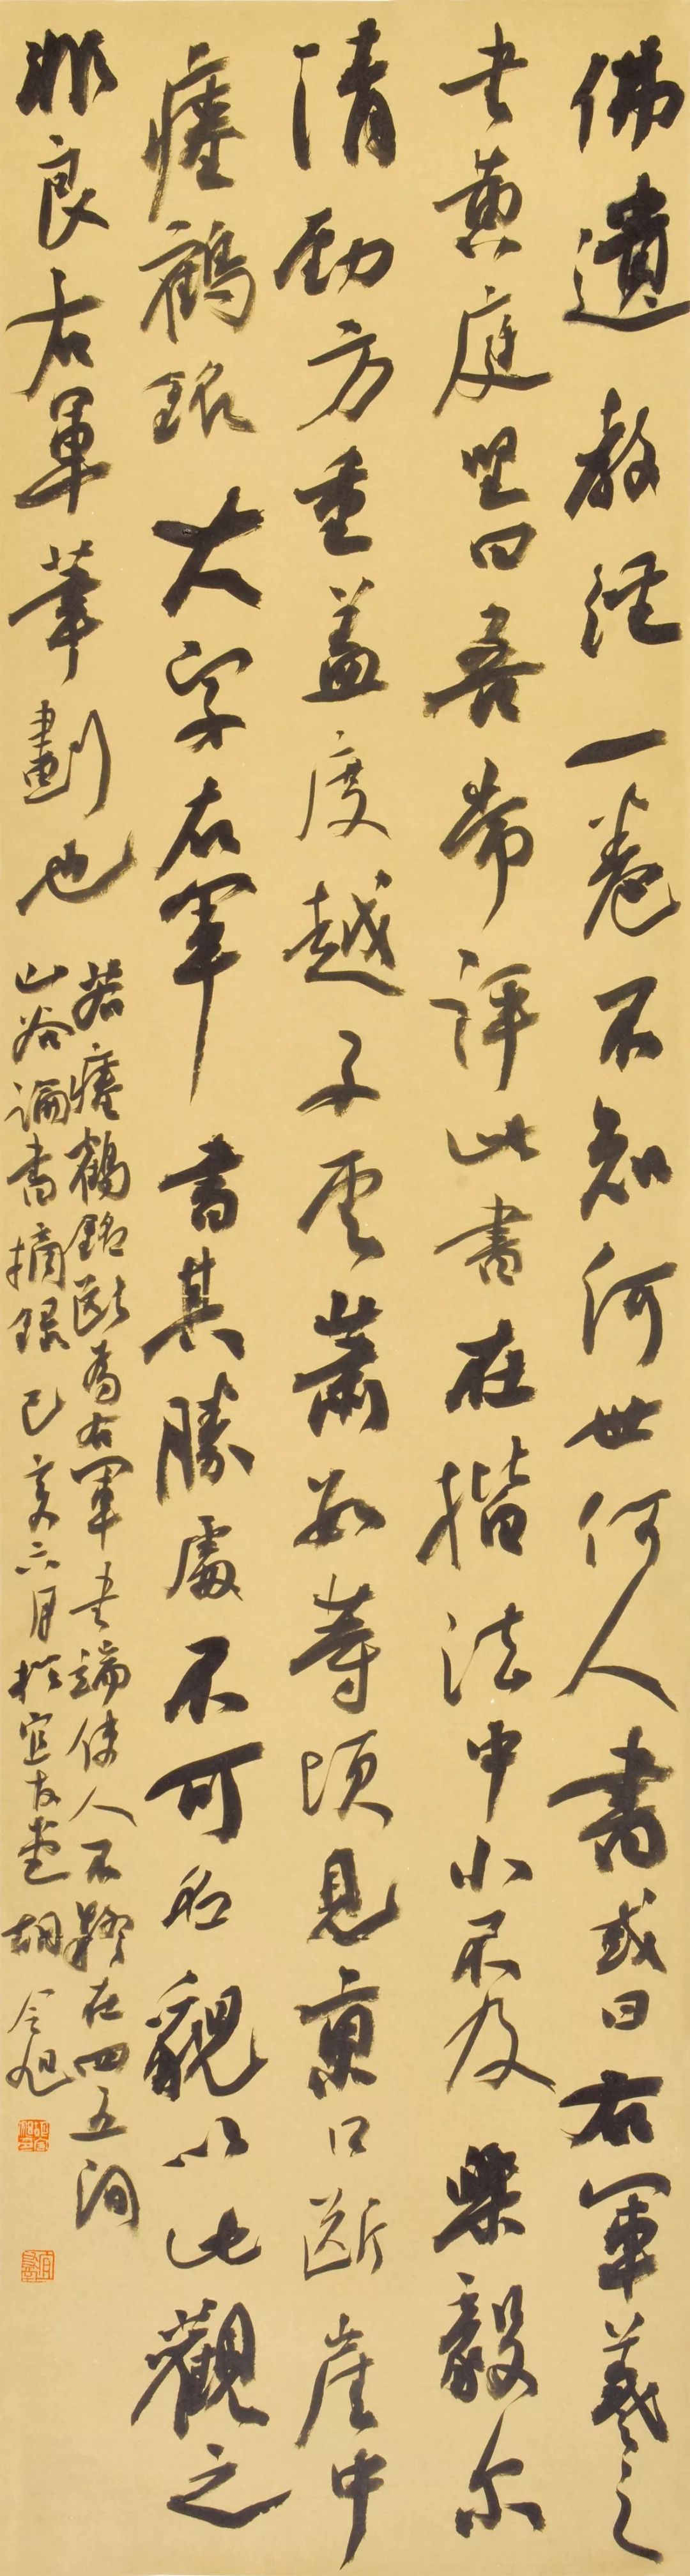 佛遺教經一卷不知何世何人書或曰右軍羲之
書黄庭堅曰吾嘗評此書在楷法中小不及樂毅尔
清勁方重蓋度越子雲蕭数等頃見京口断崖中
瘞鶴銘大字右軍書其勝處不可名貌以此觀之
非良右軍筆劃也
若瘞鶴銘断為右軍書端使人不疑在四五間
山谷論書摘録己亥六月於宜古堂胡令旭